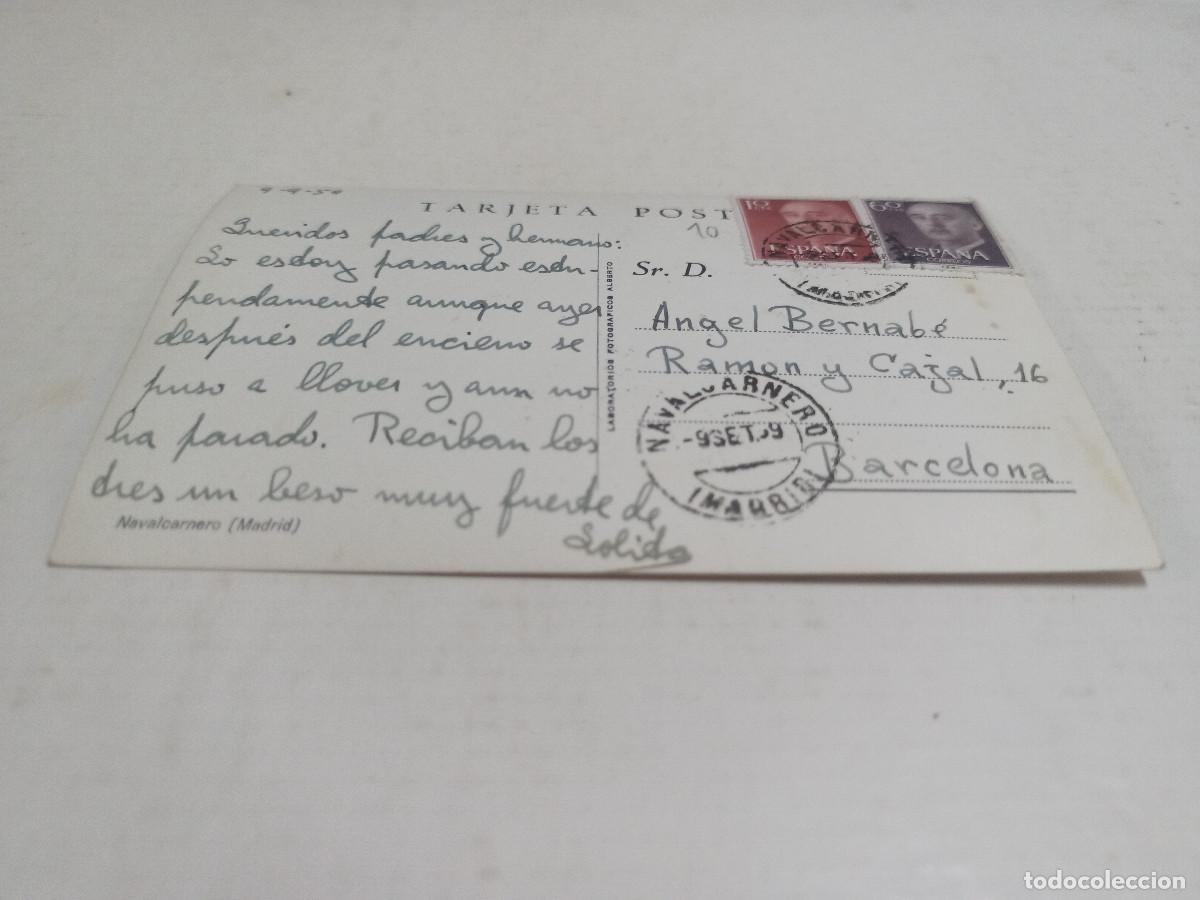 9-9-59
TARJETA POST
10
Queridos padres y hermano:
Lo estoy pasando estu-
pendamente aunque ayer
después del encierro se
puso a llover y aun no
ha parado. Reciban los
tres un beso muy fuerte de
Lolita
Navalcarnero (Madrid)
LABORATORIOS FOTOGRAFICOS ALBERTO
Sr. D.
Angel Bernabé
Ramon y Cajal, 16
Barcelona
ESPAÑA
CORREOS
60
ESPAÑA
CORREOS
NAVALCARNERO
-9SET.59
(MADRID)
todocoleccion